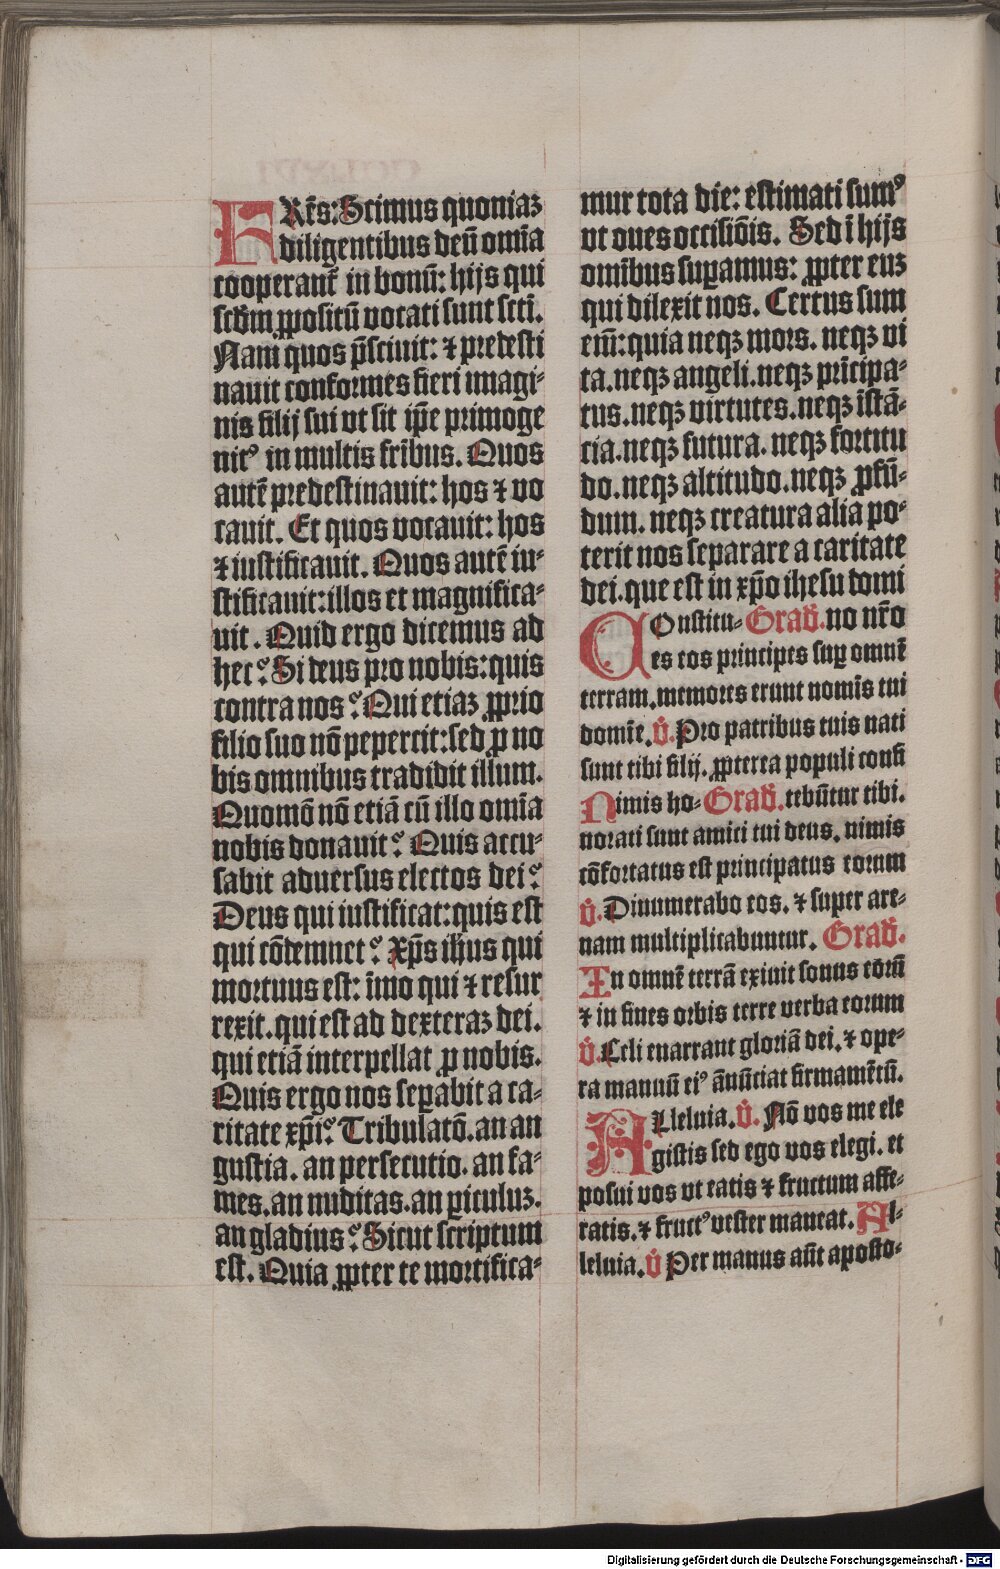 FRes̄: Scimus quoniaꝫ
diligentibus deū om̄ia
cooperant᷑ in bonū: hijs qui
scd̄m ꝓpositū vocati sunt scti.
Nam quos p̄sciuit: ⁊ predesti
nauit conformes fieri imagi-
nis filij sui vt sit ip̄e primoge
nitꝰ in multis fr̄ibus. Quos
autē predestinauit: hos ⁊ vo
cauit. Et quos vocauit: hos
⁊ iustificauit. Quos autē iu-
stificauit: illos et magnifica-
uit. Quid ergo dicemus ad
hec? Si deus pro nobis: quis
contra nos? Qui etiaꝫ ꝓprio
filio suo nō pepercit: sed ꝓ no
bis omnibus tradidit illum.
Quomō nō etiā cū illo om̄ia
nobis donauit? Quis accu-
sabit aduersus electos dei?
Deus qui iustificat: quis est
qui cōdemnet? Xp̄s ih̄us qui
mortuus est: īmo qui ⁊ resur
rexit. qui est ad dexteraꝫ dei.
qui etiā interpellat ꝓ nobis.
Quis ergo nos seꝑabit a ca-
ritate xp̄i? Tribulatō. an an
gustia. an persecutio. an fa-
mes. an nuditas. an ꝑiculuꝫ.
an gladius? Sicut scriptum
est. Quia ꝓpter te mortifica-
mur tota die: estimati sumꝰ
vt oues occisiōis. Sed ī hijs
om̄ibus suꝑamus: ꝓpter euꝫ
qui dilexit nos. Certus sum
em̄: quia neqꝫ mors. neqꝫ vi
ta. neqꝫ angeli. neqꝫ prīcipa-
tus. neqꝫ virtutes. neqꝫ īstā-
cia. neqꝫ futura. neqꝫ fortitu
do. neqꝫ altitudo. neqꝫ ꝓfū-
dum. neqꝫ creatura alia po-
terit nos separare a caritate
dei. que est in xp̄o ihesu domi
COnstitu- Grad̄. no nr̄o
es eos principes suꝑ omnē
terram. memores erunt nomīs tui
domīe. v̄. Pro patribus tuis nati
sunt tibi filij. ꝓpterea populi confi
Nimis ho- Grad̄. tebūtur tibi.
norati sunt amici tui deus. nimis
cōfortatus est principatus eorum
v̄. Dinumerabo eos. ⁊ super are-
nam multiplicabuntur. Grad̄.
In omnē terrā exiuit sonus eorū
⁊ in fines orbis terre verba eorum
v̄. Celi enarrant gloriā dei. ⁊ ope-
ra manuū eiꝰ ānūciat firmamētū.
ALleluia. v̄. Nō vos me ele
gistis sed ego vos elegi. et
posui vos vt eatis ⁊ fructum affe-
ratis. ⁊ fructꝰ vester maneat. Al-
leluia. v̄ Per manus aūt aposto-
Digitalisierung gefördert durch die Deutsche Forschungsgemeinschaft - DFG